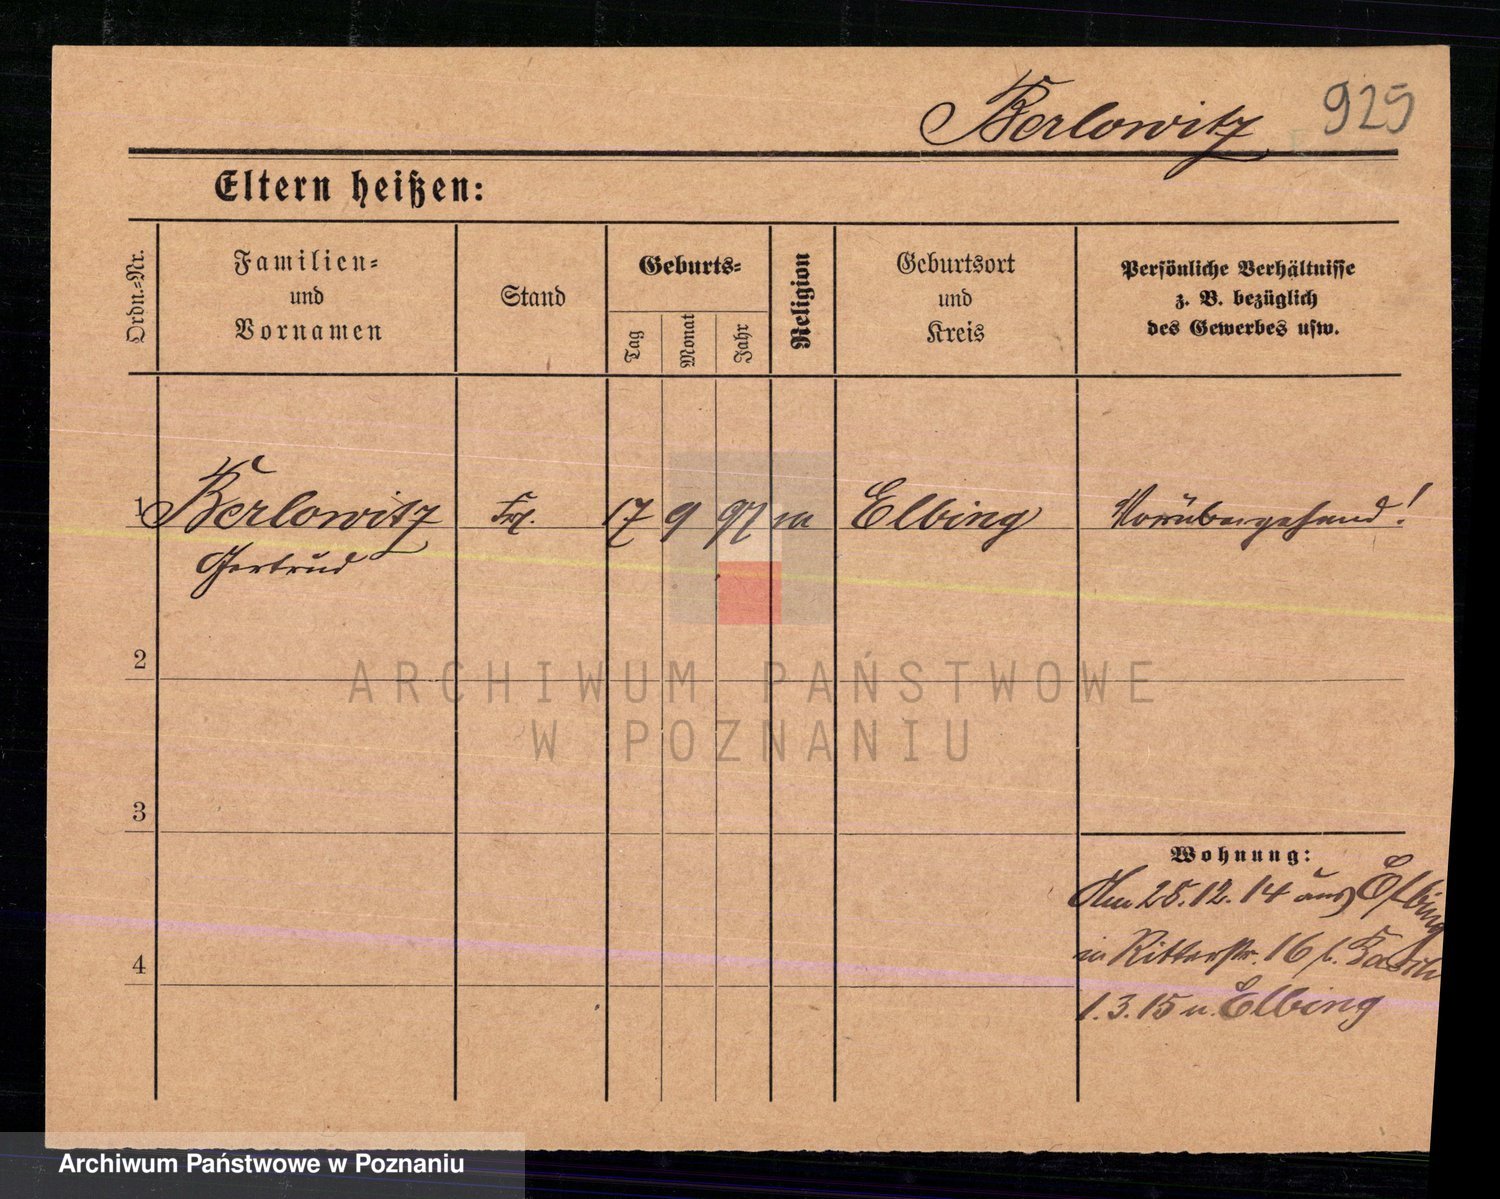 Berlowitz 925
Eltern heißen:
Ordn.-Nr.
Familien-
und
Vornamen
Stand
Geburts-
Tag
Monat
Jahr
Religion
Geburtsort
und
Kreis
Persönliche Verhältnisse
z. B. bezüglich
des Gewerbes usw.
1 Berlowitz Frl. 17 9 97 Elbing Vorübergehend!
Gertrud
2
3
4
Wohnung:
Am 25.12.14 aus Elbing
in Ritterstr. 16 b.
1.3.15 n. Elbing
ARCHIWUM PAŃSTWOWE
W POZNANIU
Archiwum Państwowe w Poznaniu